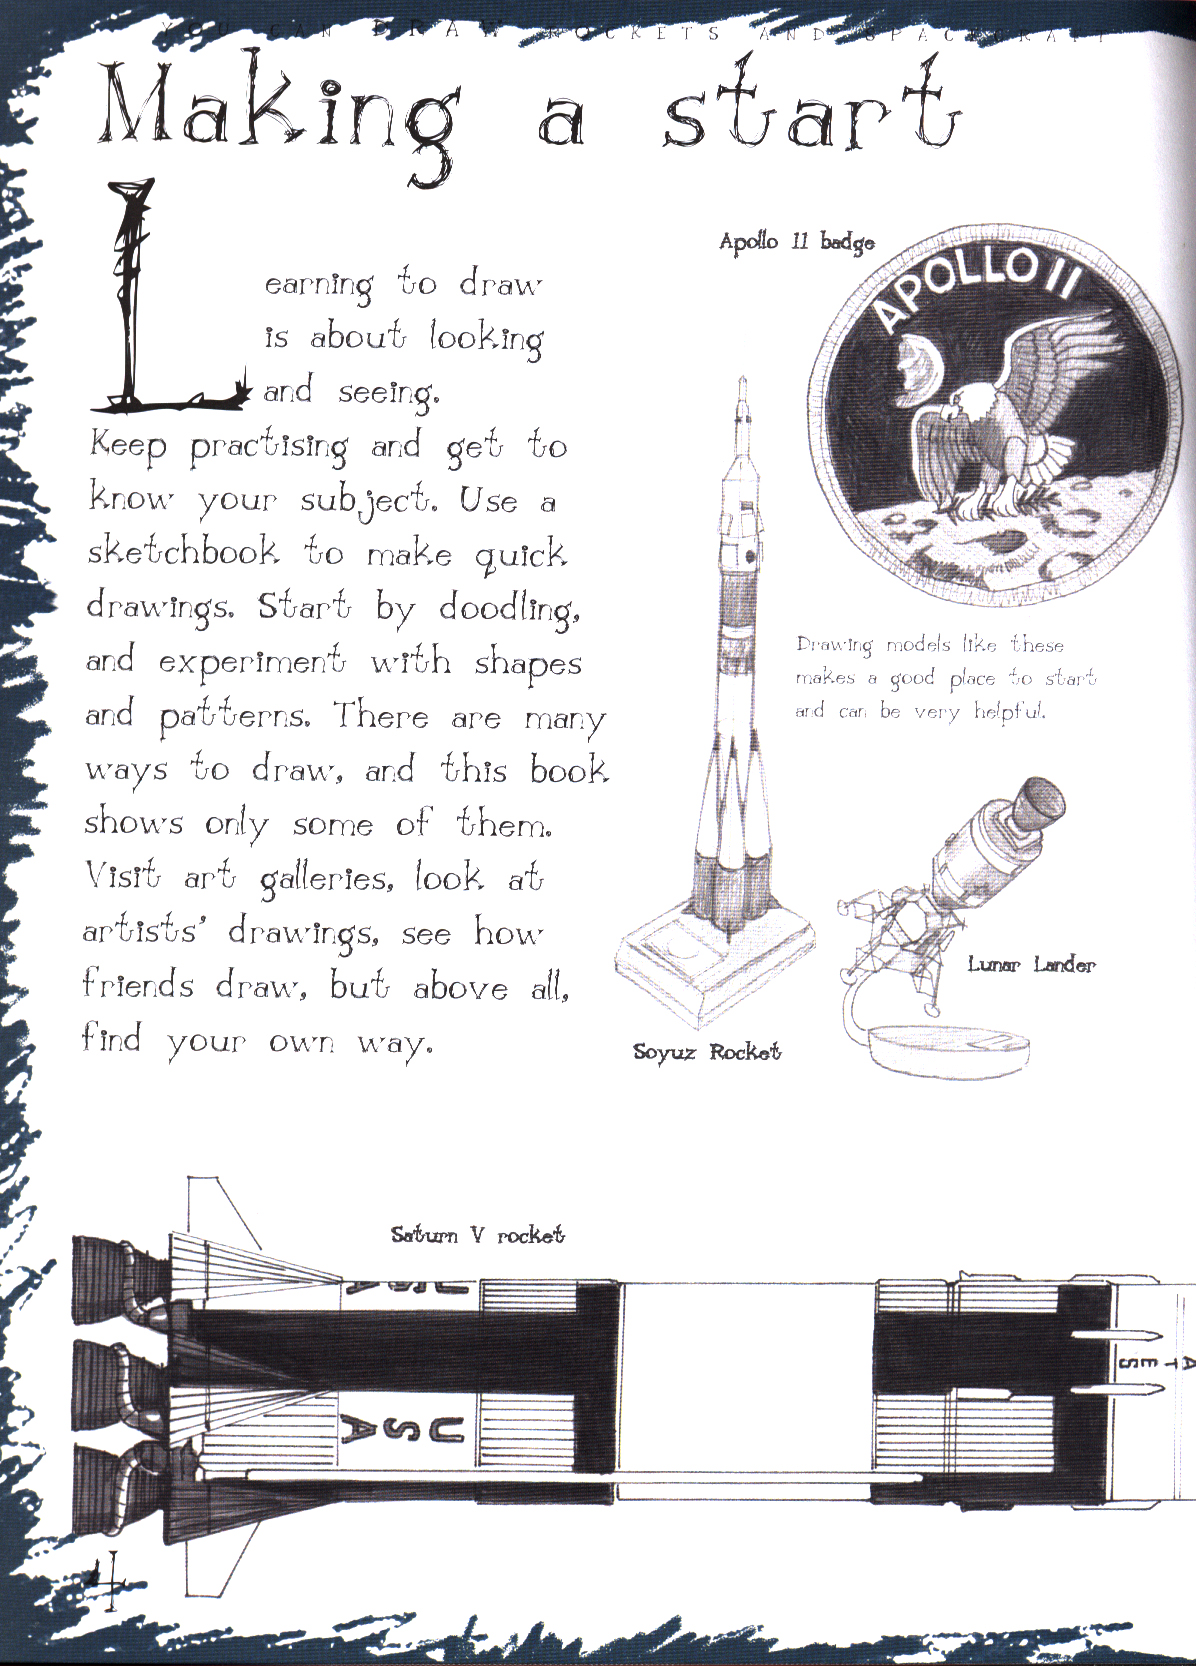 YOU CAN DRAW ROCKETS AND SPACECRAFT
Making a start
Learning to draw
is about looking
and seeing.
Keep practising and get to
know your subject. Use a
sketchbook to make quick
drawings. Start by doodling,
and experiment with shapes
and patterns. There are many
ways to draw, and this book
shows only some of them.
Visit art galleries, look at
artists' drawings, see how
friends draw, but above all,
find your own way.
Apollo 11 badge
APOLLO 11
Drawing models like these
makes a good place to start
and can be very helpful.
Lunar Lander
Soyuz Rocket
Saturn V rocket
USA
USA
ATES
4